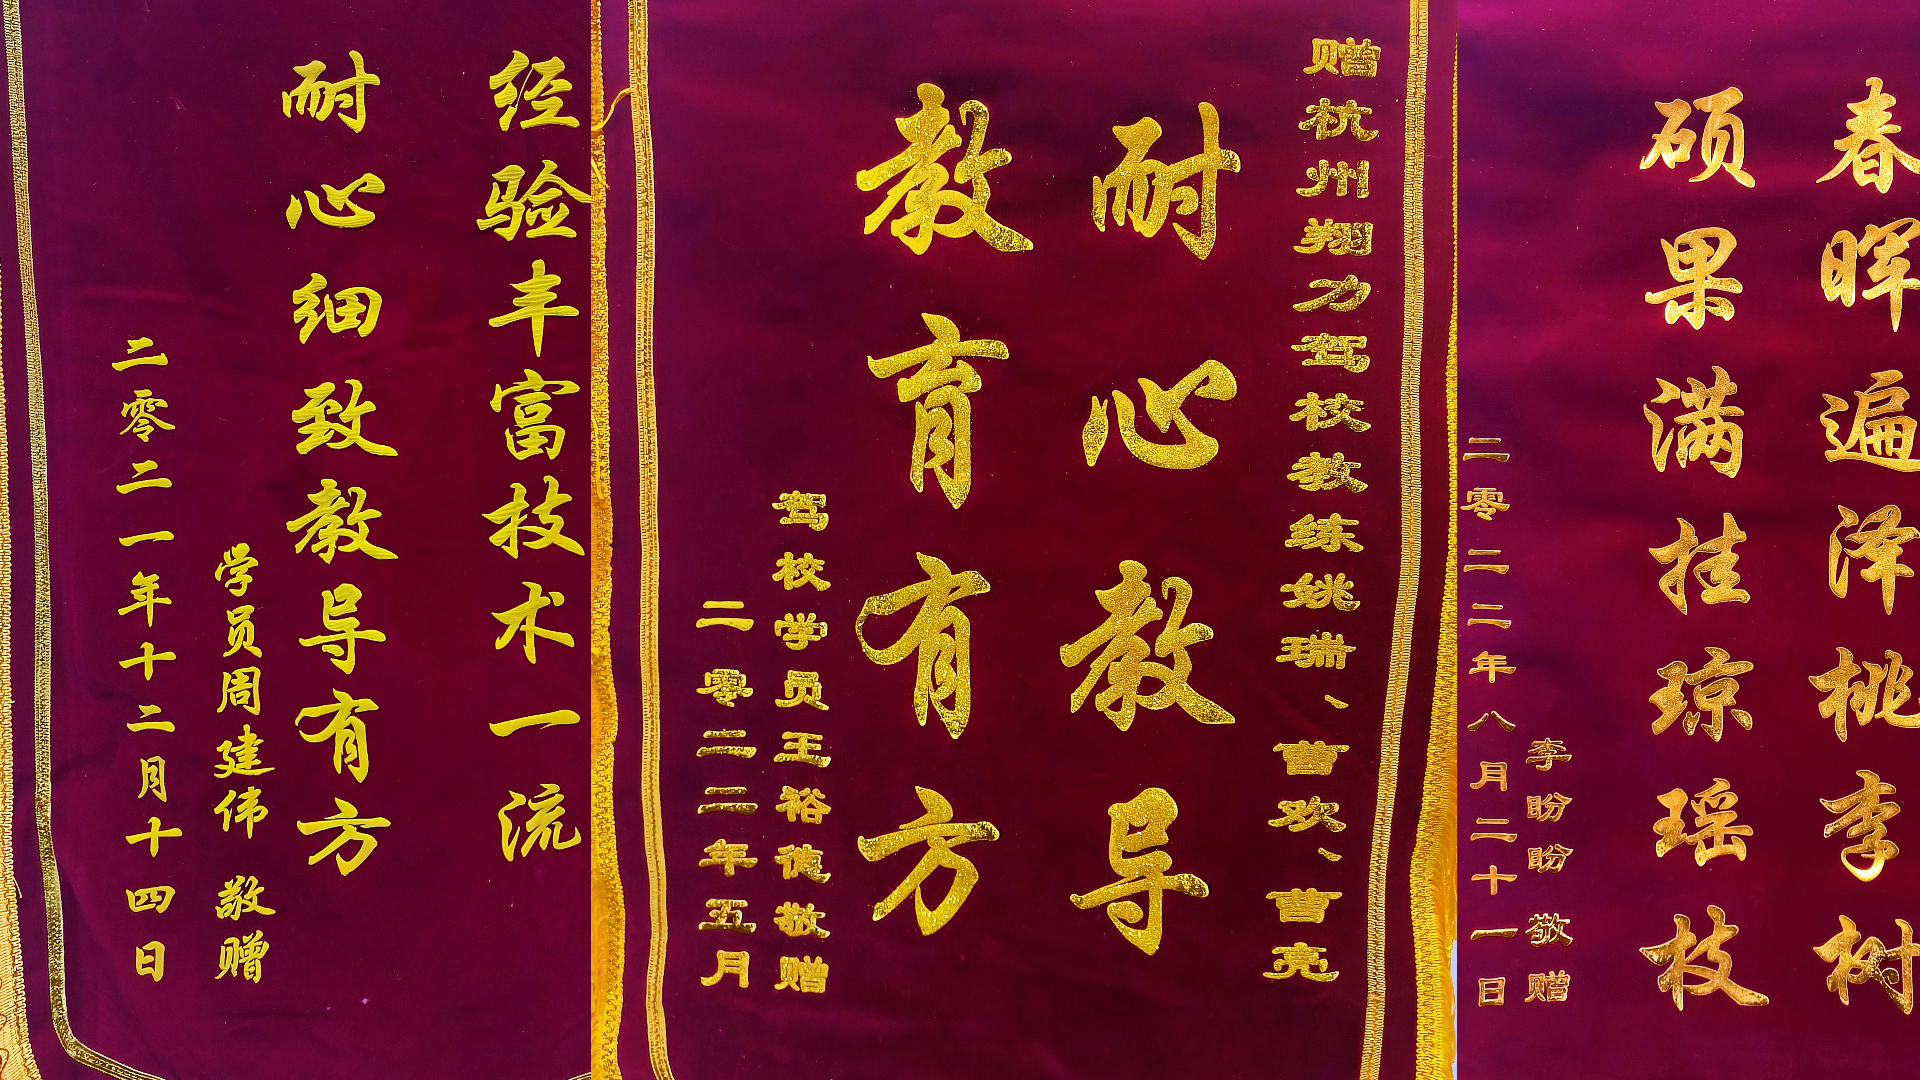 经验丰富技术一流
耐心细致教导有方
学员周建伟 敬赠
二零二一年十二月十四日
赠杭州翔力驾校教练姚瑞、曹欢、曹亮
耐心教导
教育有方
驾校学员王裕德敬赠
二零二二年五月
春晖遍泽桃李树
硕果满挂琼瑶枝
李盼盼 敬赠
二零二二年八月二十一日